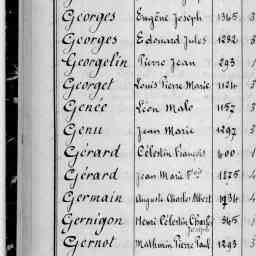 Georges Eugène Joseph 1365 3
Georges Edouard Jules 1282 3
Georgelin Pierre Jean 293 1
Georget Louis Pierre Marie 1124 3
Genée Léon Malo 1157 3
Genu Jean Marie 1297 3
Gérard Célestin François 600 1
Gérard Jean Marie Fois 1875 4
Germain Auguste Charles Albert 1734 4
Gernigon Henri Célestin Charles 565
Joseph
Gernot Mathurin Pierre Paul 1293 3